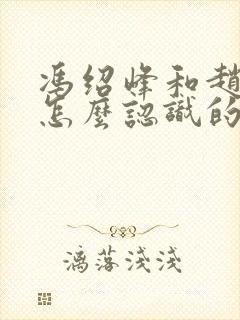 馮紹峰和趙
怎麼認識的
漓落淺淺